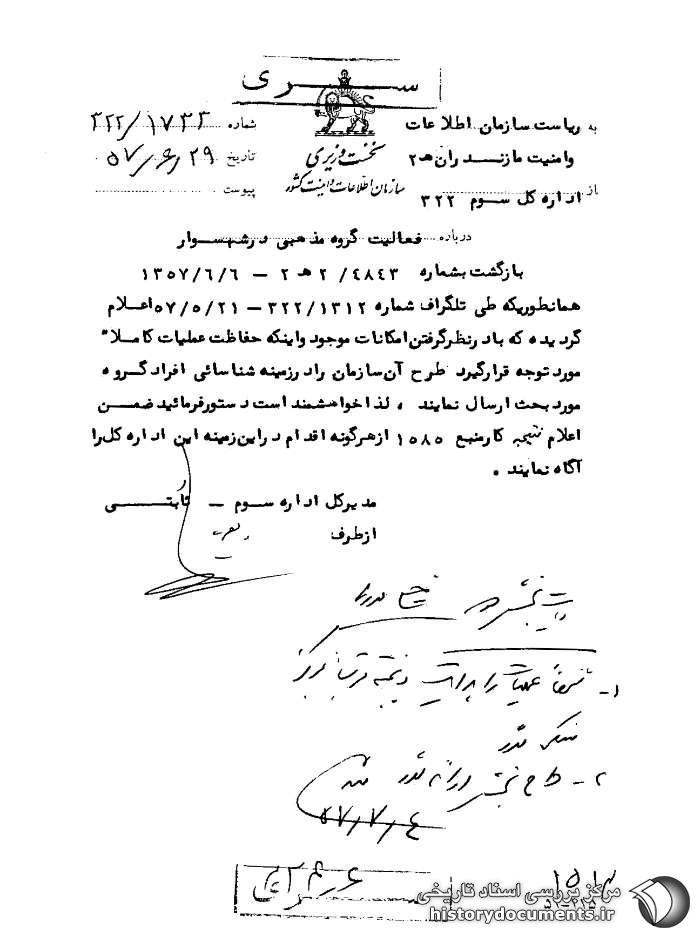 سری
به ریاست سازمان اطلاعات
وامنیت مازندران ه‍ ۲
از اداره کل سوم ۳۲۲
نخست وزیری
سازمان اطلاعات و امنیت کشور
شماره ۳۲۲/۱۷۳۳
تاریخ ۵۷/۶/۲۹
پیوست
درباره فعالیت گروه مذهبی درشهسوار
بازگشت بشماره ۲/۴۸۴۳ ه‍ ۲ – ۱۳۵۷/۶/۶
همانطوریکه طی تلگراف شماره ۳۲۲/۱۳۱۲–۵۷/۵/۲۱ اعلام
گردیده که بادرنظرگرفتن امکانات موجود واینکه حفاظت عملیات کاملا"
مورد توجه قرارگیرد طرح آن سازمان رادرزمینه شناسائی افراد گروه
مورد بحث ارسال نمایند ، لذا خواهشمند است دستورفرمائید ضمن
اعلام نتیجه کارمنبع ۱۵۸۵ ازهرگونه اقدام دراین زمینه این اداره کل را
آگاه نمایند .
مدیرکل اداره سوم – ثابتی
ازطرف
۱-
۲- طرح
۵۷/۷/۴
سری
۱۵۱۳
مرکز بررسی اسناد تاریخی
historydocuments.ir